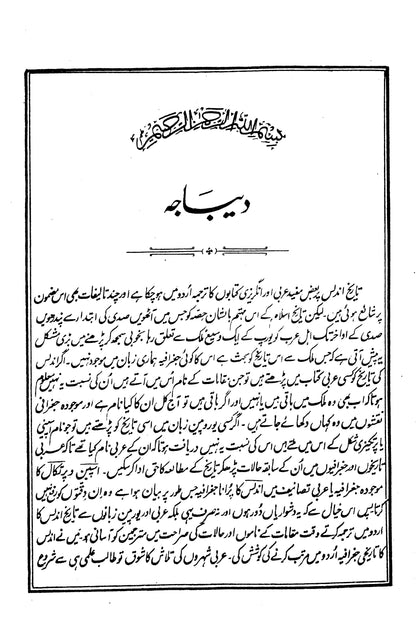 بسم اللہ الرحمن الرحیم
دیباجہ
تاریخ اندلس پر بعض مفید عربی اور انگریزی کتابوں کا ترجمہ اُردو میں ہو چکا ہے اور چند تالیفات بھی اس مضمون
پر شائع ہوئی ہیں۔ لیکن تاریخ اسلام کے اس مہتم بالشان حصّہ کو جس میں آٹھویں صدی کی ابتدا سے پندرھویں
صدی کے اواخر تک اہل عرب کو یورپ کے ایک وسیع ملک سے تعلق رہا، بخوبی سمجھ کر پڑھنے میں بڑی مشکل
یہ پیش آتی ہے کہ جس ملک سے اس تاریخ کو بحث ہے اس کا کوئی جغرافیہ ہماری زبان میں موجود نہیں۔ اگر اندلس
کی تاریخ کو کسی عربی کتاب میں پڑھتے ہیں تو جن مقامات کے نام اس میں آتے ہیں اُن کی نسبت یہ نہیں معلوم
ہوتا کہ اب بھی وہ ملک میں باقی ہیں یا نہیں اور اگر باقی ہیں تو آج کل ان کا کیا نام ہے اور موجودہ جغرافی
نقشوں میں وہ کہاں دکھائے جاتے ہیں۔ اگر کسی یوروپین زبان میں اسی تاریخ کو پڑھتے ہیں تو جو نام اسپینی
یا پرتگیزی شکل کے اس میں ملتے ہیں اس کی نسبت یہ نہیں دریافت ہوتا کہ ان کے عربی نام کیا تھے تاکہ عربی
تاریخوں اور جغرافیوں میں اُن کے سابقہ حالات پڑھکر تاریخ کے مطالعہ کا حق ادا کر سکیں۔ اسپین و پرتگال کا
موجودہ جغرافیہ یا عربی تصانیف میں اندلس کا پُرانا جغرافیہ جس طور پر بیان ہوا ہے وہ ان دقتوں کو رفع نہیں
کرتا اس لیے اس خیال سے کہ یہ دشواریاں دُور ہوں اور نہ صرف یہی بلکہ عربی اور یورپین زبانوں سے تاریخ اندلس کا
اردو میں ترجمہ کرتے وقت مقامات کے ناموں اور حالات کی صراحت میں مترجمین کو آسانی ہو میں نے اندلس
کا تاریخی جغرافیہ اُردو میں مرتب کرنے کی کوشش کی۔ عربی شہروں کی تلاش کا شوق تو طالب علمی ہی سے شروع